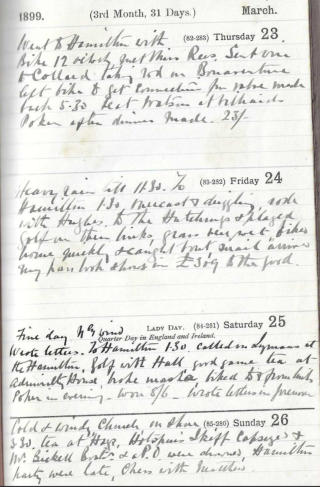 1899. (3rd Month, 31 Days.) March.
(82-283) Thursday 23.
Went to Hamilton with
Bike 12 o'clock met Miss Rees. Sent one
to Collard taking rod on Bonaventure
left bike to get connection for valve made
back 5-30 beat Watson at billiards
Poker after dinner made 23/-
(83-282) Friday 24
Heavy rain till 11.30. To
Hamilton 1.30 overcast & drizzling, rode
with Hughes to the Hutchings & played
golf on their links, grass very wet. biked
home quickly & caught boat
my pass book shows in £309 to the good.
LADY DAY. (84-281) Saturday 25
Quarter Day in England and Ireland.
Fine day N'ly wind
Wrote letters. To Hamilton 1.30 called on Lymans at
the Hamilton. Golf with Hall good game tea at
Admiralty House broke biked to & from links
Poker in evening won 8/6 wrote letters in forenoon
(85-280) Sunday 26
Cold & windy Church on shore
3.30 tea at Hays, Hotspurs Skiff capsized &
Mr Bickell & a P.O. were drowned, Hamilton
party were late, Chess with